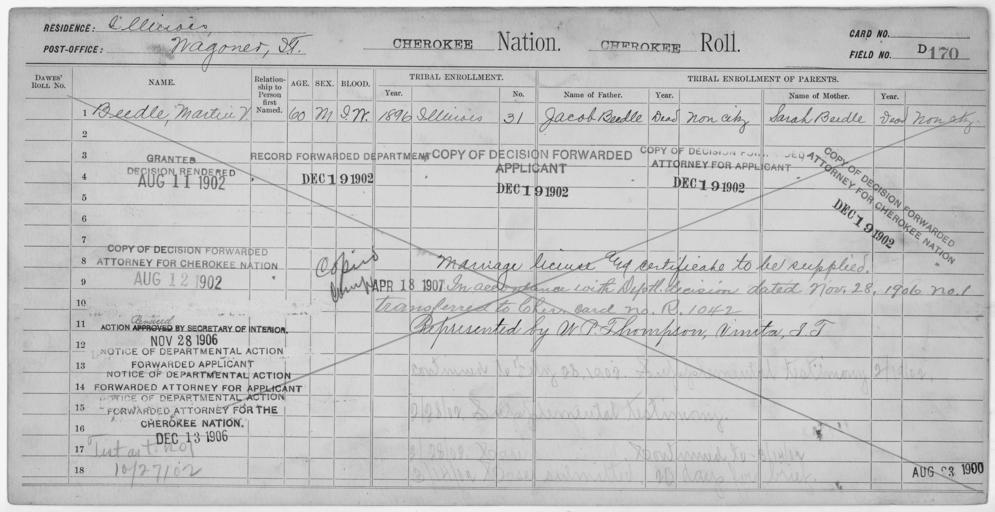 RESIDENCE: Illinois,
POST-OFFICE: Wagoner, I.T.
CHEROKEE Nation. CHEROKEE Roll.
CARD NO.
FIELD NO. D 170
DAWES' ROLL NO. NAME. Relationship to Person first Named. AGE. SEX. BLOOD. TRIBAL ENROLLMENT. TRIBAL ENROLLMENT OF PARENTS.
Year. No. Name of Father. Year. Name of Mother. Year.
1 Beedle, Martin V 60 M I.W. 1896 Illinois 31 Jacob Beedle Dead Non citz Sarah Beedle Dead Non citz.
2
3 GRANTED
DECISION RENDERED
AUG 11 1902
RECORD FORWARDED DEPARTMENT
DEC 19 1902
COPY OF DECISION FORWARDED
APPLICANT
DEC 19 1902
COPY OF DECISION FORWARDED
ATTORNEY FOR APPLICANT
DEC 19 1902
COPY OF DECISION FORWARDED
ATTORNEY FOR CHEROKEE NATION
DEC 19 1902
4
5
6
7
COPY OF DECISION FORWARDED
ATTORNEY FOR CHEROKEE NATION
AUG 12 1902
8 Marriage license and certificate to be supplied.
9 APR 18 1907 In accordance with Dept'l decision dated Nov. 28, 1906 no. 1
10 transferred to Cher. card no. R. 1042
11 Represented by W P Thompson, Vinita, I.T
ACTION APPROVED BY SECRETARY OF INTERIOR.
NOV 28 1906
12 NOTICE OF DEPARTMENTAL ACTION
13 FORWARDED APPLICANT
NOTICE OF DEPARTMENTAL ACTION
14 FORWARDED ATTORNEY FOR APPLICANT
NOTICE OF DEPARTMENTAL ACTION
15 FORWARDED ATTORNEY FOR THE
16 CHEROKEE NATION.
DEC 13 1906
17
18 10/27/02
AUG 23 1900